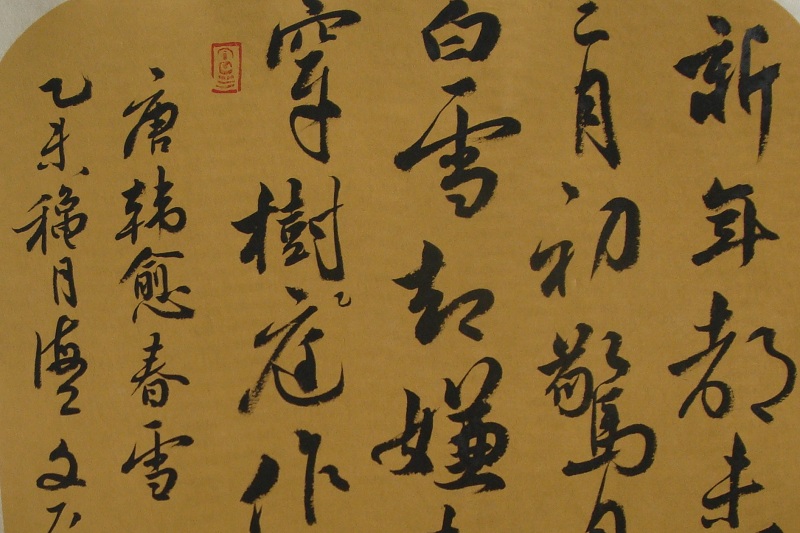 新年都未
二月初驚
白雪却嫌
穿樹庭作
唐韩愈春雪
乙未穐月海上文